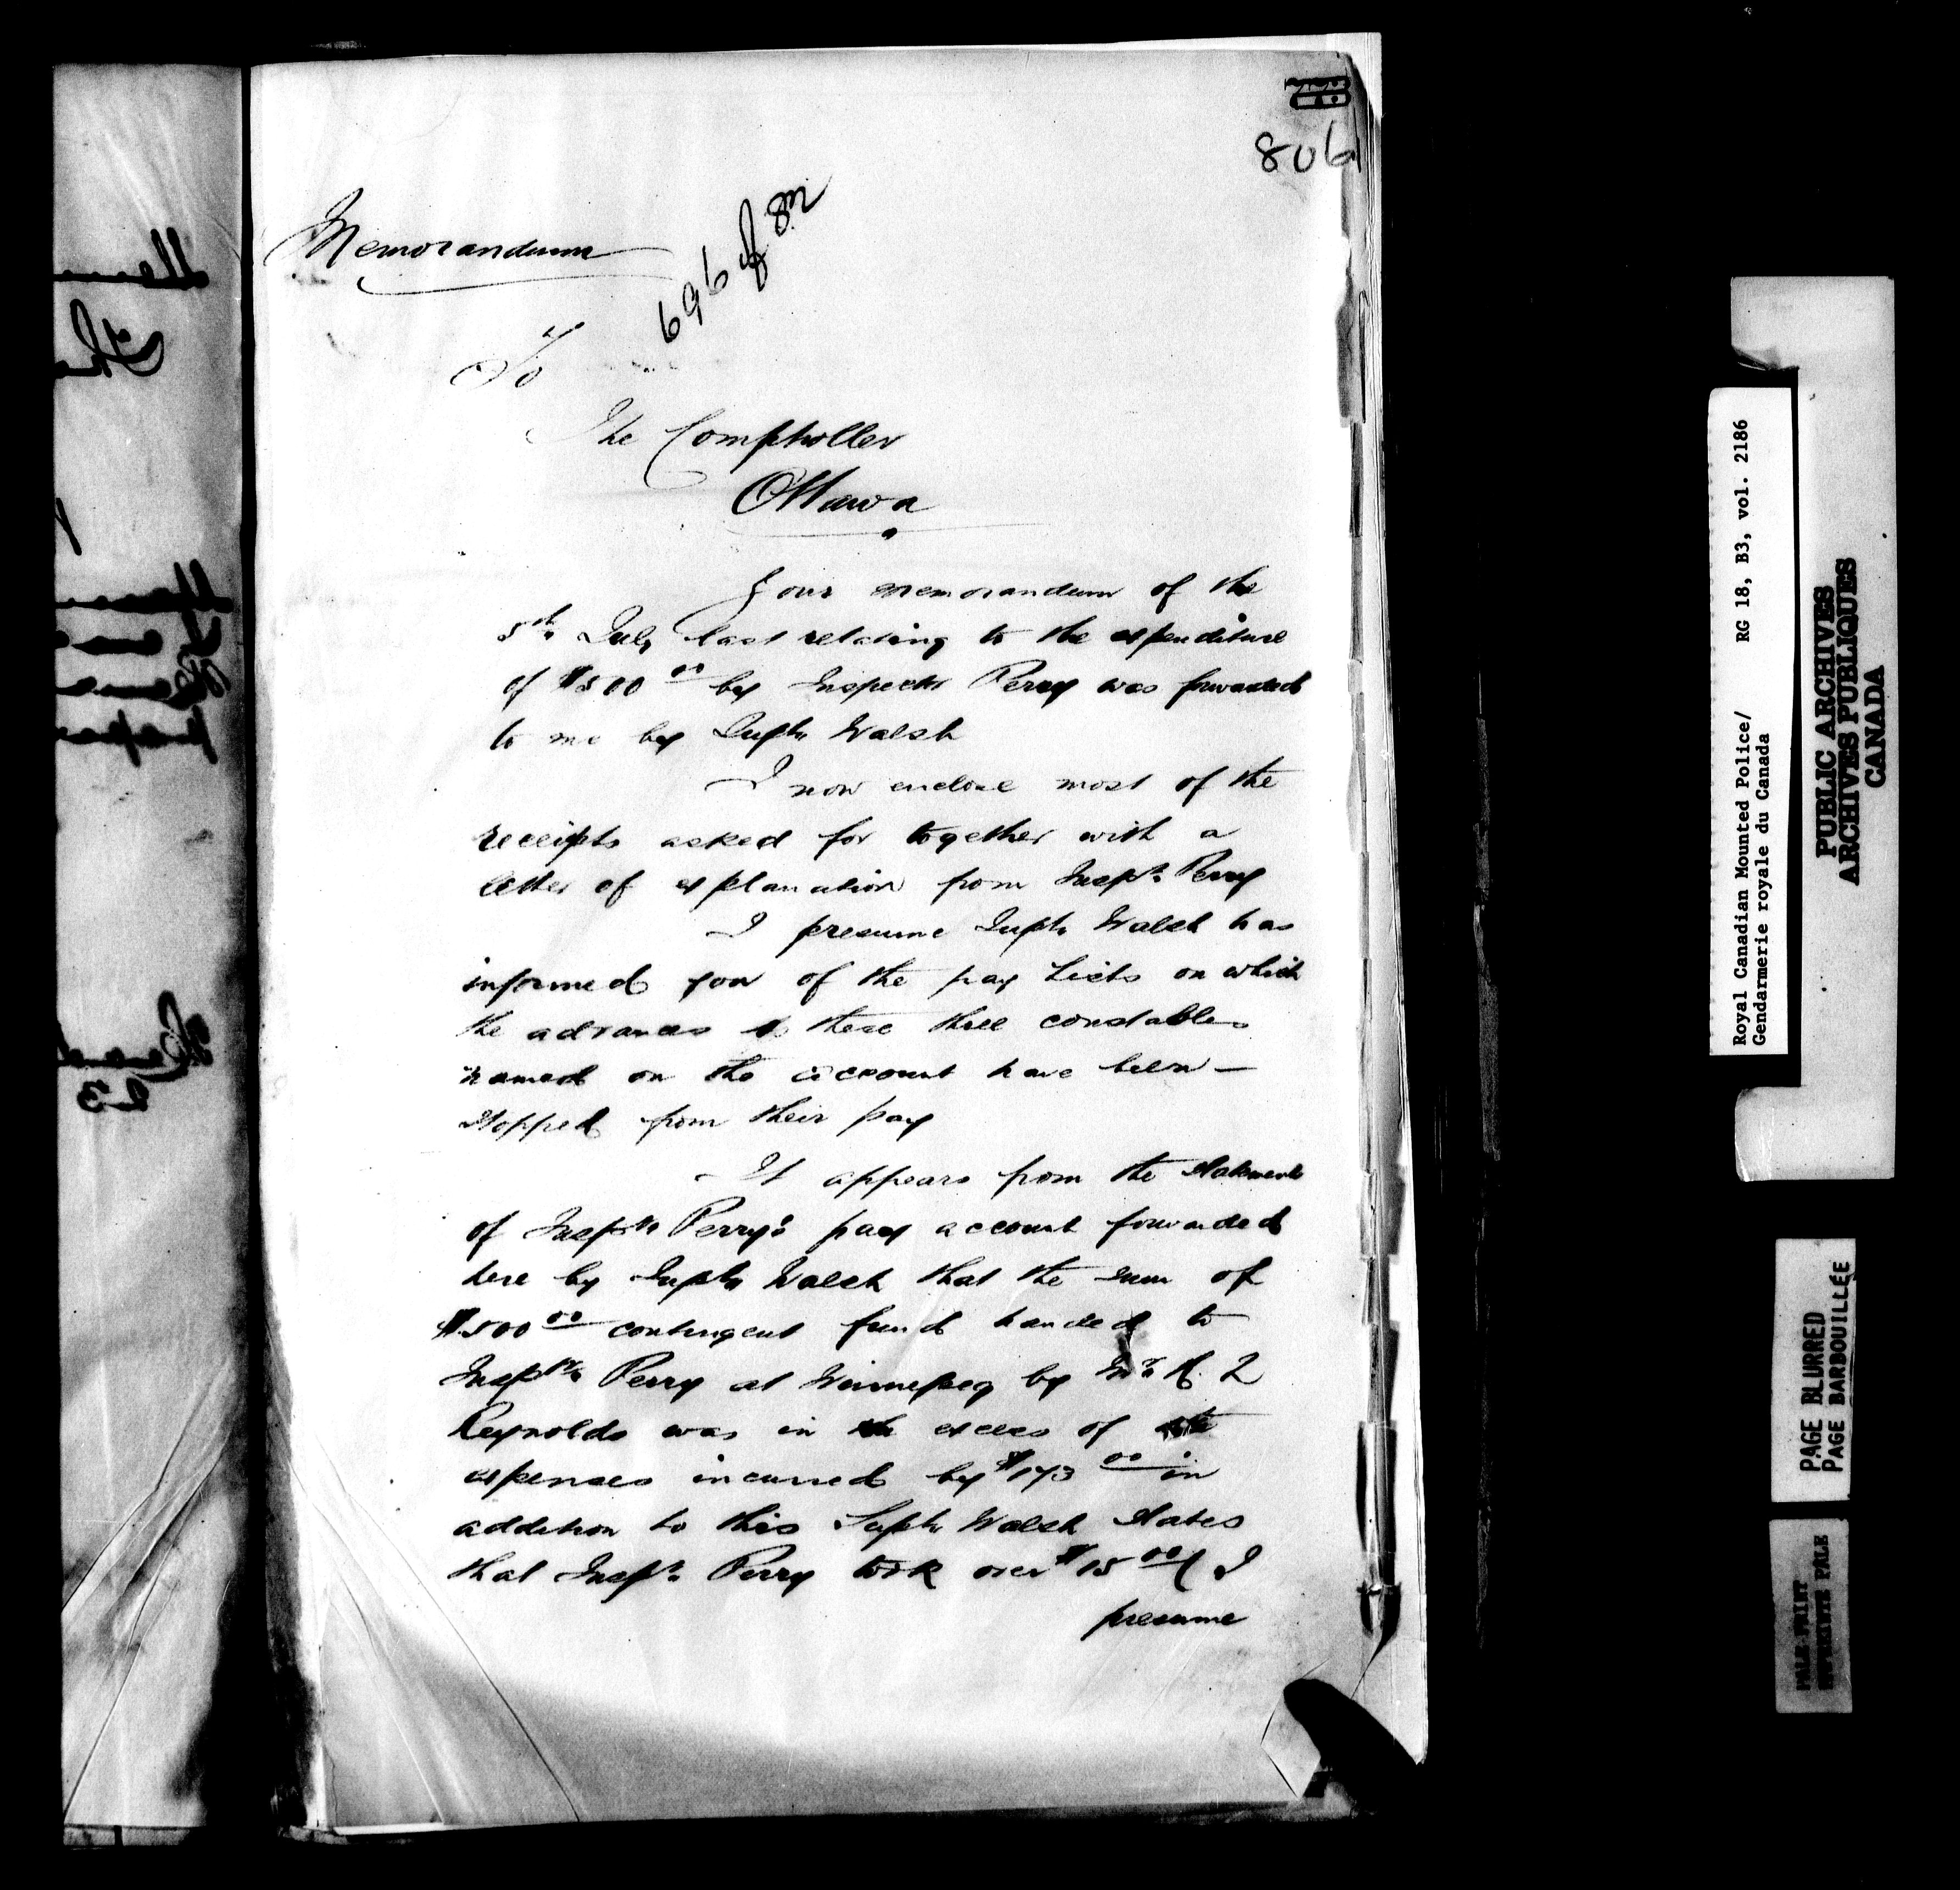 806
Memorandum
696
To
The Comptroller
Ottawa
Your memorandum of the
5th July last relating to the expenditure
of $500 00 by Inspector Perry was forwarded
to me by Supt. Walsh
I now enclose most of the
receipts asked for together with a
letter of explanation from Inspr. Perry
I presume Supt. Walsh has
informed you of the pay Lists on which
the advances to these three constables
named on the account have been —
stopped from their pay
It appears from the statements
of Inspr. Perry's pay account forwarded
here by Supt. Walsh that the sum of
$500 00 contingent fund handed to
Inspr. Perry at Winnepeg by Mr. H. L
Reynolds was in excess of the
expenses incurred by $173 00 in
addition to this Supt. Walsh states
that Inspr. Perry took over $15 00 ( I
presume
Royal Canadian Mounted Police/ RG 18, B3, vol. 2186
Gendarmerie royale du Canada
PUBLIC ARCHIVES
ARCHIVES PUBLIQUES
CANADA
PAGE BLURRED
PAGE BARBOUILLÉE
PALE PRINT
PALE